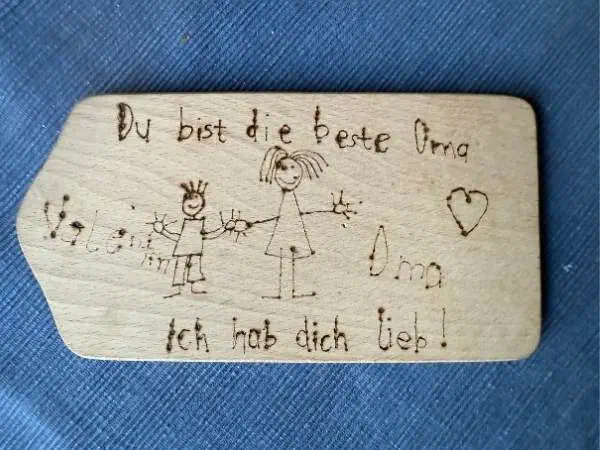 Du bist die beste Oma
Valentin
Oma
Ich hab dich lieb!